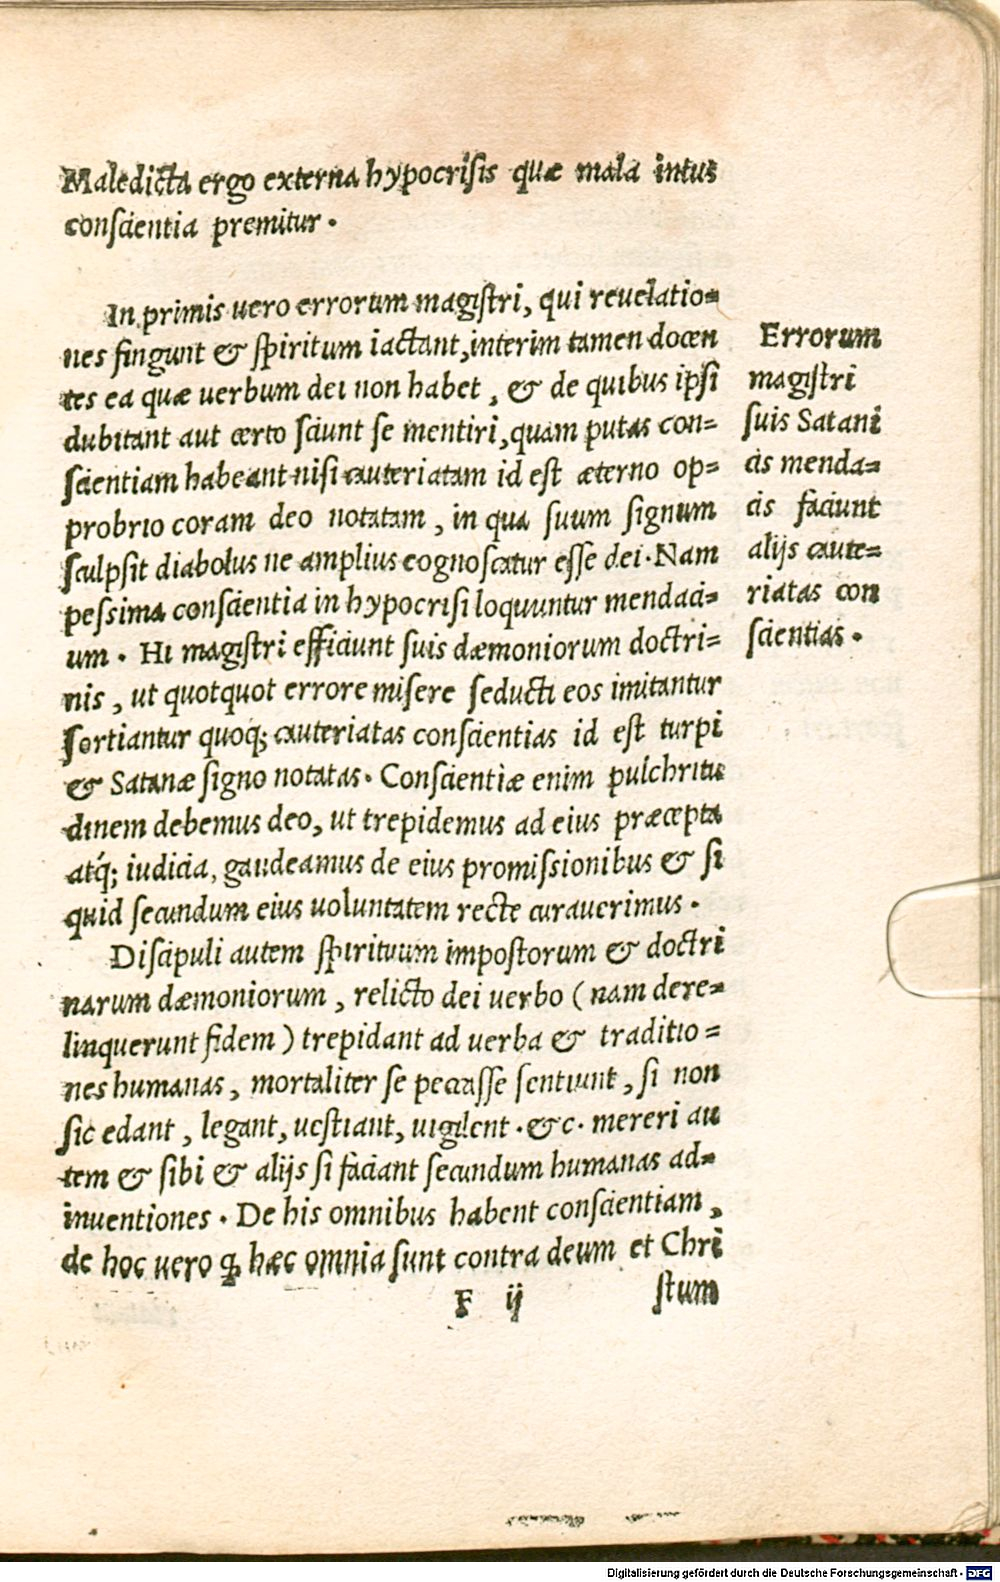 Maledicta ergo externa hypocrisis quæ mala intus
conscientia premitur.
In primis uero errorum magistri, qui reuelatio=
nes fingunt & spiritum iactant, interim tamen docen
tes ea quæ uerbum dei non habet, & de quibus ipsi
dubitant aut certo sciunt se mentiri, quam putas con=
scientiam habeant nisi cauteriatam id est æterno op=
probrio coram deo notatam, in qua suum signum
sculpsit diabolus ne amplius cognoscatur esse dei. Nam
pessima conscientia in hypocrisi loquuntur mendaci=
um. Hi magistri efficiunt suis dæmoniorum doctri=
nis, ut quotquot errore misere seducti eos imitantur
sortiantur quoq; cauteriatas conscientias id est turpi
& Satanæ signo notatas. Conscientiæ enim pulchritu
dinem debemus deo, ut trepidemus ad eius præcepta
atq́; iudicia, gaudeamus de eius promissionibus & si
quid secundum eius uoluntatem recte curauerimus.
Discipuli autem spirituum impostorum & doctri
narum dæmoniorum, relicto dei uerbo (nam dere=
linquerunt fidem) trepidant ad uerba & traditio=
nes humanas, mortaliter se peccasse sentiunt, si non
sic edant, legant, uestiant, uigilent. &c. mereri au
tem & sibi & alijs si faciant secundum humanas ad=
inuentiones. De his omnibus habent conscientiam,
de hoc uero ꝙ hæc omnia sunt contra deum et Chri
F ij
stum
Errorum
magistri
suis Satani
cis menda=
cis faciunt
alijs caute=
riatas con
scientias.
Digitalisierung gefördert durch die Deutsche Forschungsgemeinschaft - DFG